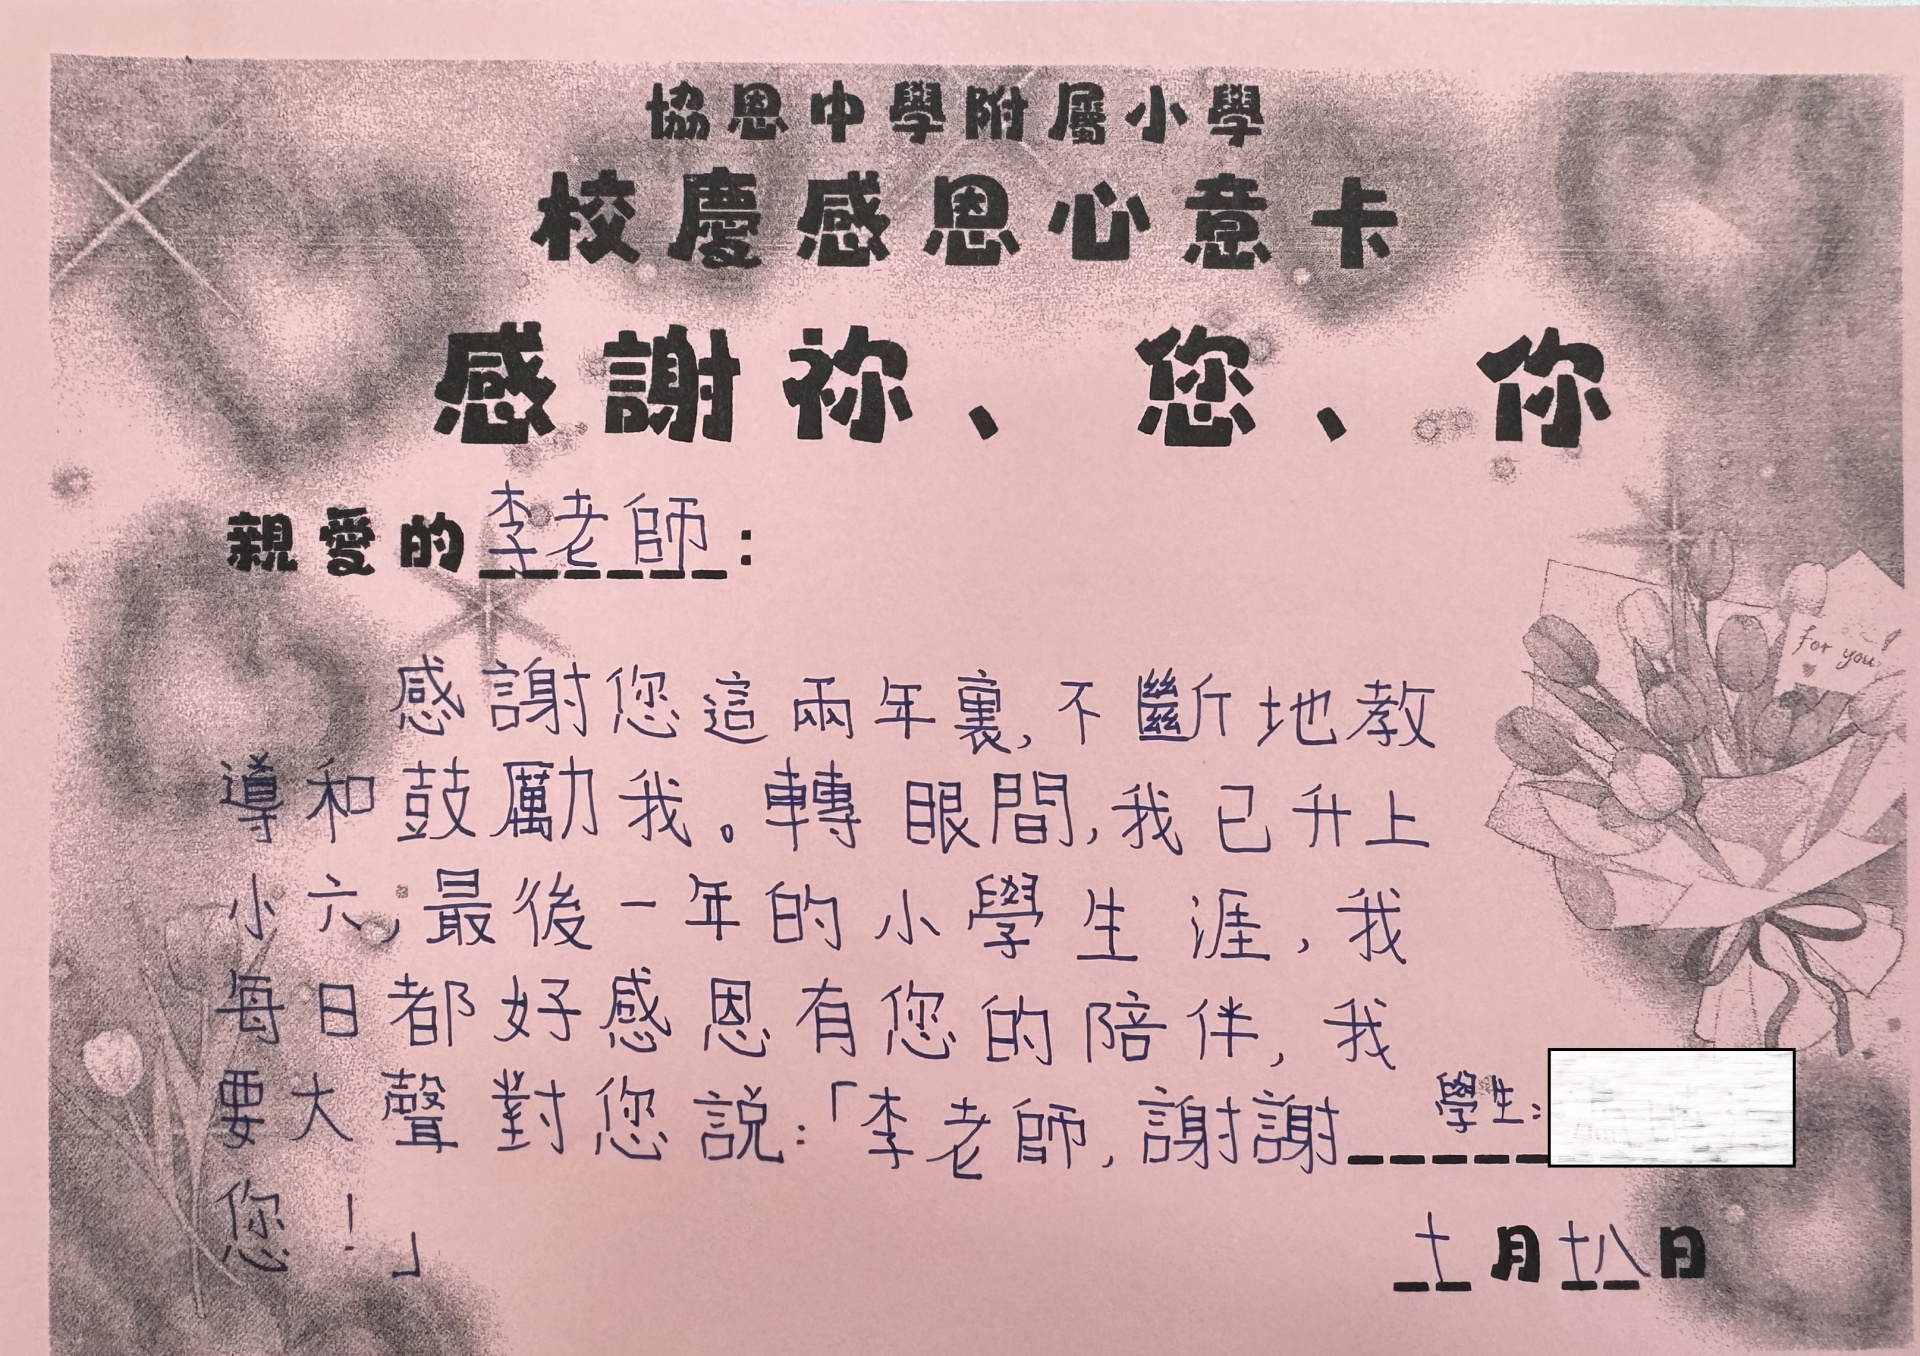 協恩中學附屬小學
校慶感恩心意卡
感謝祢、您、你
親愛的李老師：
for you
感謝您這兩年裏，不斷地教
導和鼓勵我。轉眼間，我已升上
小六，最後一年的小學生涯，我
每日都好感恩有您的陪伴，我
要大聲對您說：「李老師，謝謝
您！」
學生：
十月十八日